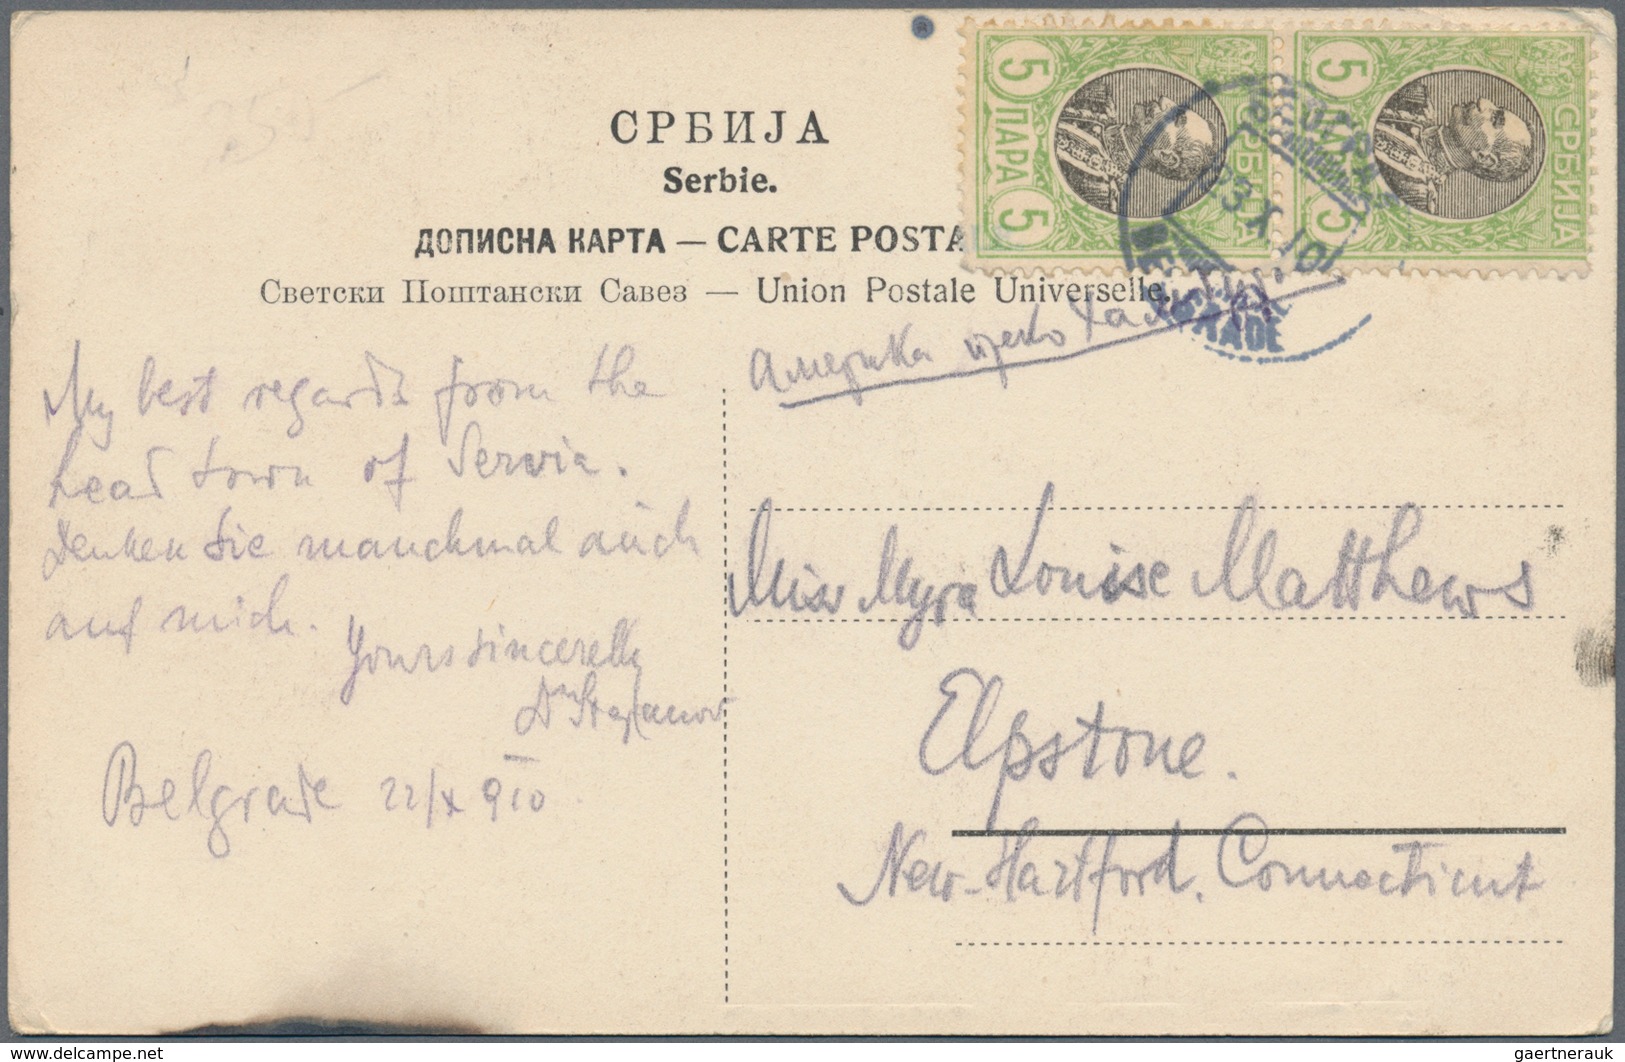 СРБИЈА
Serbie.
ДОПИСНА КАРТА — CARTE POSTA
Светски Поштански Савез — Union Postale Universelle.
5 ПАРА 5
СРБИЈА
5 ПАРА 5
СРБИЈА
23 X 10
Америка преко
My best regards from the
head town of Servia.
Denken Sie manchmal auch
auf mich.
Yours sincerelly
Belgrade 22/X 910
Miss Myra Louise Matthews
Elpstone.
New-Hartford. Connecticut
gaertnerauk